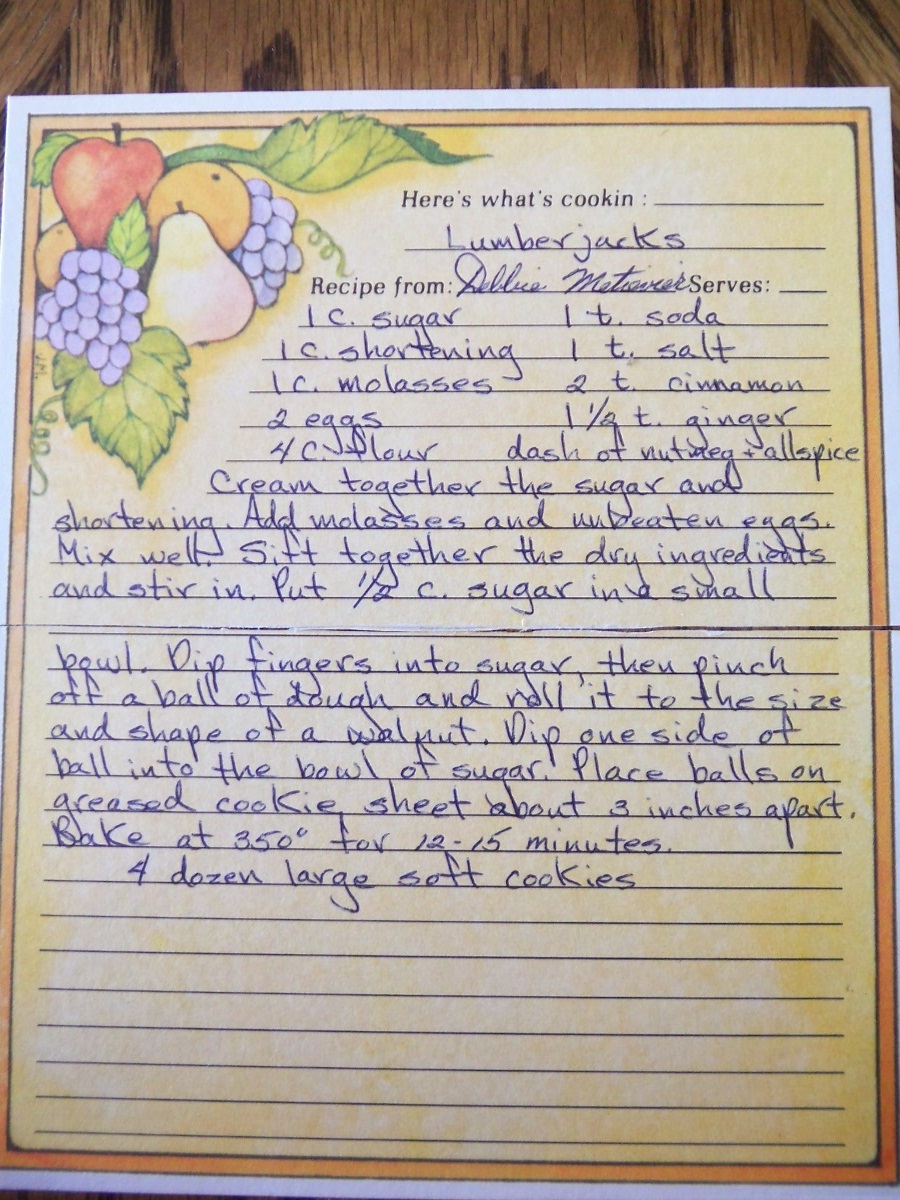 Here's what's cookin :
Lumberjacks
Recipe from: Debbie Serves:
1 c. sugar 1 t. soda
1 c. shortening 1 t. salt
1 c. molasses 2 t. cinnamon
2 eggs 1 1/2 t. ginger
4 c. flour dash of nutmeg + allspice
Cream together the sugar and
shortening. Add molasses and unbeaten eggs.
Mix well. Sift together the dry ingredients
and stir in. Put 1/2 c. sugar in a small
bowl. Dip fingers into sugar, then pinch
off a ball of dough and roll it to the size
and shape of a walnut. Dip one side of
ball into the bowl of sugar. Place balls on
greased cookie sheet about 3 inches apart.
Bake at 350° for 12-15 minutes.
4 dozen large soft cookies